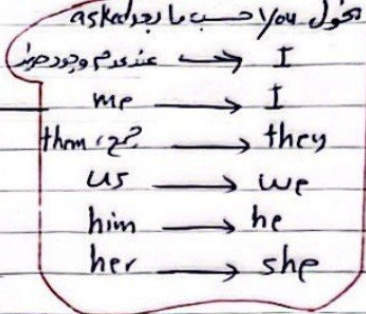 تحول you حسب ما بعد asked
عند عدم وجود ضمير → I
me → I
them ، جمع → they
us → we
him → he
her → she